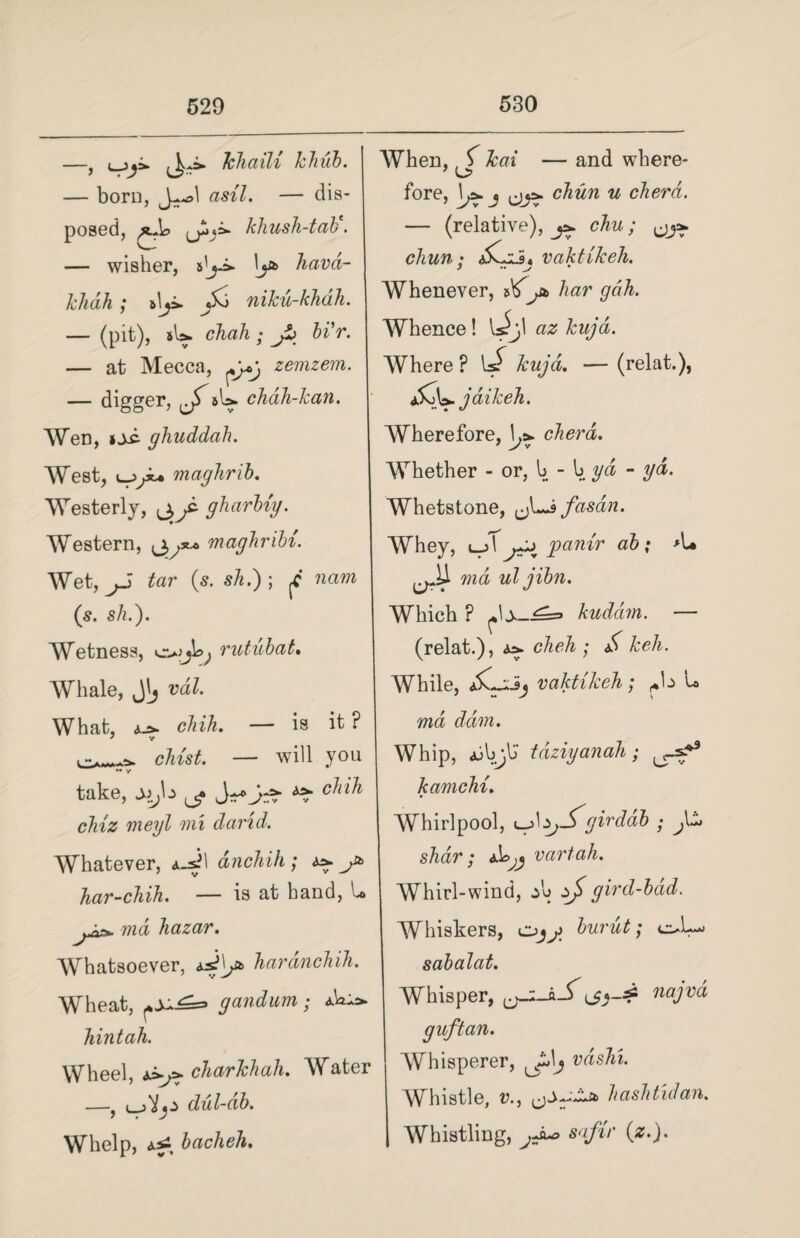 529
—, خوب خیلی khailí khúb.
— born, اصیل asíl. — dis-
posed, خوش طبع khush-tab‘.
— wisher, هوا خواه havá-
kháh ; نکو خواه nikú-kháh.
— (pit), چاه chah ; بئر bi'r.
— at Mecca, زمزم zemzem.
— digger, چاه کن cháh-kan.
Wen, غده ghuddah.
West, مغرب maghrib.
Westerly, غربی gharbíy.
Western, مغربی maghribí.
Wet, تر tar (s. sh.) ; نم nam
(s. sh.).
Wetness, رطوبت rutúbat.
Whale, وال vál.
What, چه chih. — is it ?
چیست chíst. — will you
take, چه چیز میل می دارید chih
chíz meyl mí daríd.
Whatever, آنچه ánchih ; هر چه
har-chih. — is at hand, ما
حضر má hazar.
Whatsoever, هرآنچه haránchih.
Wheat, گندم gandum ; حنطه
hintah.
Wheel, چرخه charkhah. Water
—, دولاب dúl-áb.
Whelp, بچه bacheh.
530
When, کی kai — and where-
fore, چون و چرا chún u cherá.
— (relative), چو chu ; چون
chun ; وقتیکه vaktíkeh.
Whenever, هر گاه har gáh.
Whence ! از کجا az kujá.
Where ? کجا kujá. — (relat.),
جایکه jáikeh.
Wherefore, چرا cherá.
Whether - or, یا - یا yá - yá.
Whetstone, فسان fasán.
Whey, پنیر آب panír ab ; ماء
الجبن má ul jibn.
Which ? کدام kudám. —
(relat.), چه cheh ; که keh.
While, وقتیکه vaktíkeh ; ما دام
má dám.
Whip, تازیانه táziyanah ; قمچی
kamchí.
Whirlpool, گرداب girdáb ; شار
shár ; ورطه vartah.
Whirl-wind, گرد باد gird-bád.
Whiskers, بروت burút ; سبلت
sabalat.
Whisper, نجوی گفتن najvá
guftan.
Whisperer, واشی váshí.
Whistle, v., هشتیدن hashtídan.
Whistling, صفیر safír (z.).